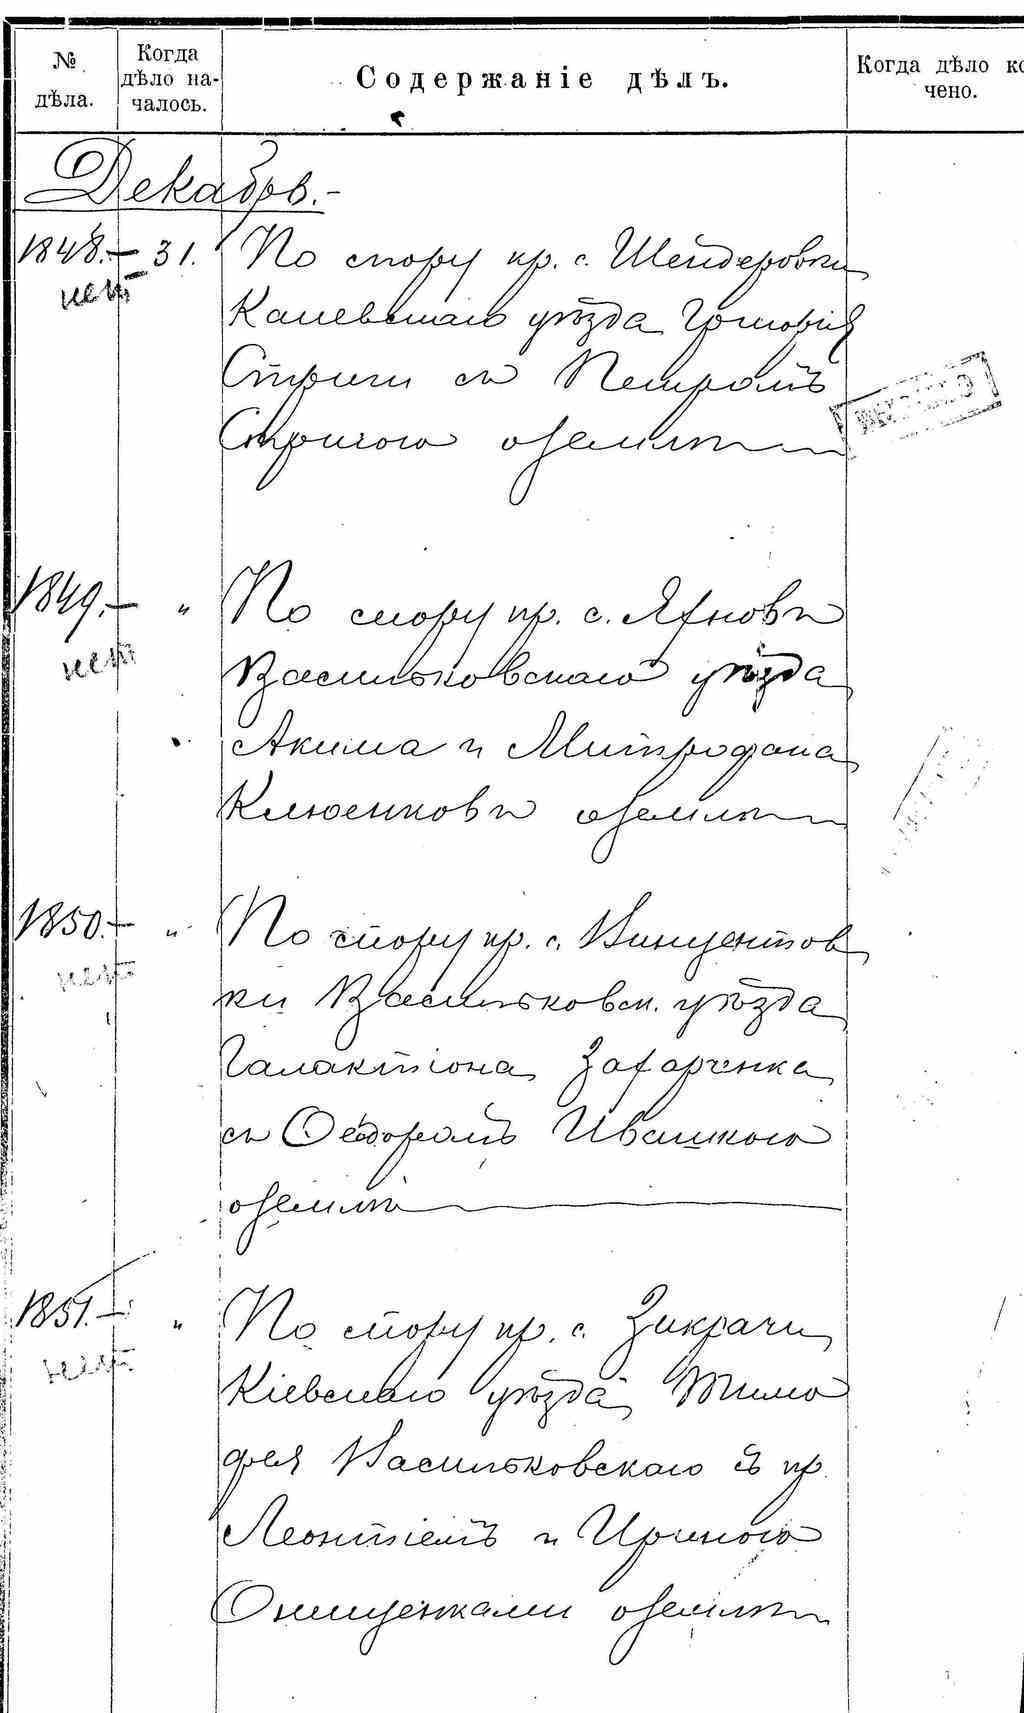 № дѣла.
Когда дѣло на-
чалось.
Содержаніе дѣлъ.
Когда дѣло ко
чено.
Декабрь.-
1848.- 31. По спору кр. с. Шендеровки
нет
Каневскаго уѣзда Григорія
Стриги съ Петромъ
Стригою о землѣ
1849.- " По спору кр. с. Яхновъ
нет
Васильковскаго уѣзда
Акима и Митрофана
Клюенковъ о землѣ
1850.- " По спору кр. с. Винцентов
нет
ки Васильковск. уѣзда
Галактіона Захарченка
съ Ѳеодоромъ Ивашкою
о землѣ
1851.- " По спору кр. с. Зикрачи
нет
Кіевскаго уѣзда Тимо
фея Васильковскаго съ кр.
Леонтіемъ и Ириною
Онищенками о землѣ